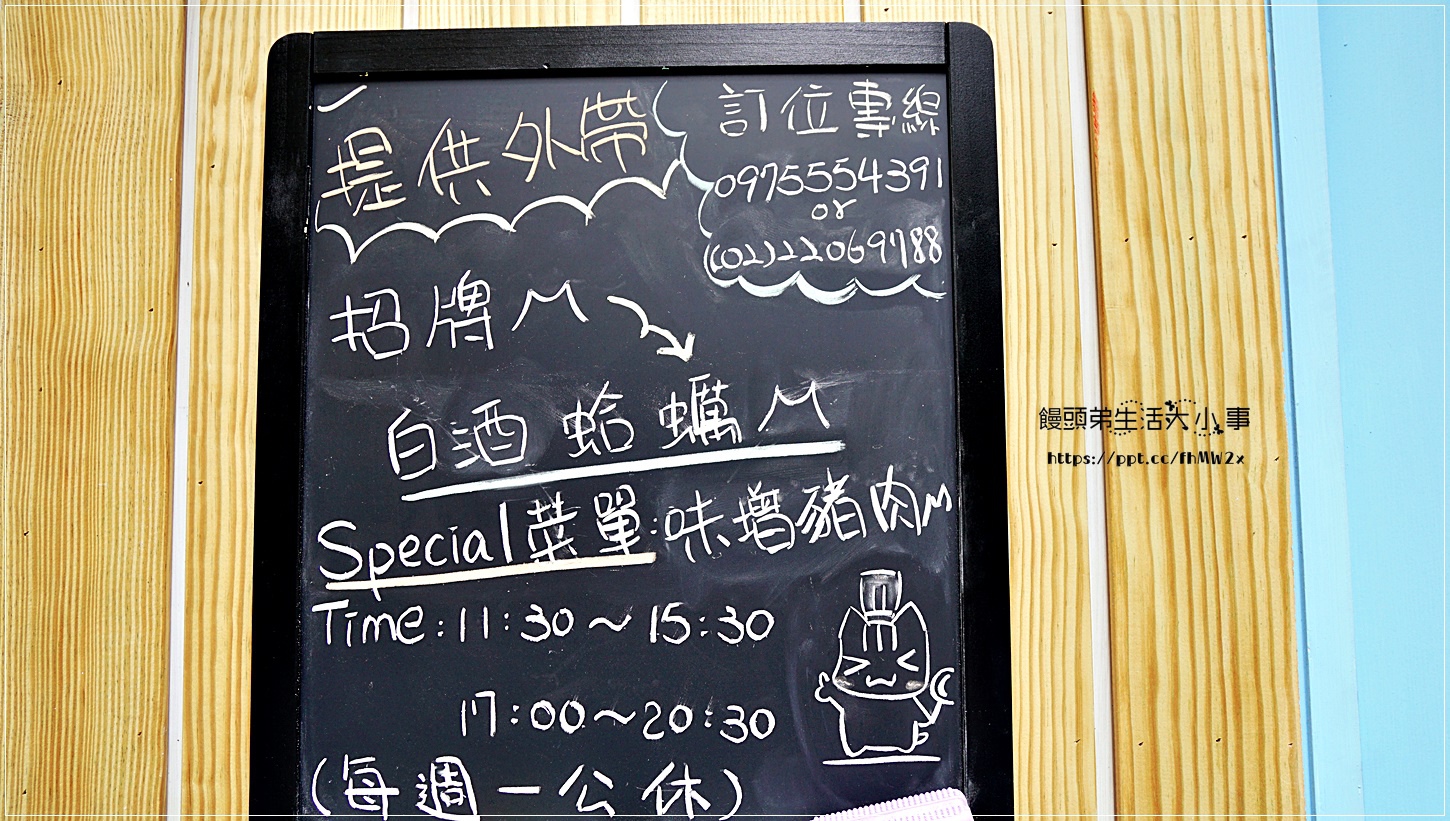 提供外帶
訂位專線
0975554391
or
(02)22069788
招牌ㄇ
白酒蛤蠣ㄇ
Special菜單:味增豬肉ㄇ
Time:11:30~15:30
17:00~20:30
(每週一公休)
饅頭弟生活大小事
https://ppt.cc/fhMW2x